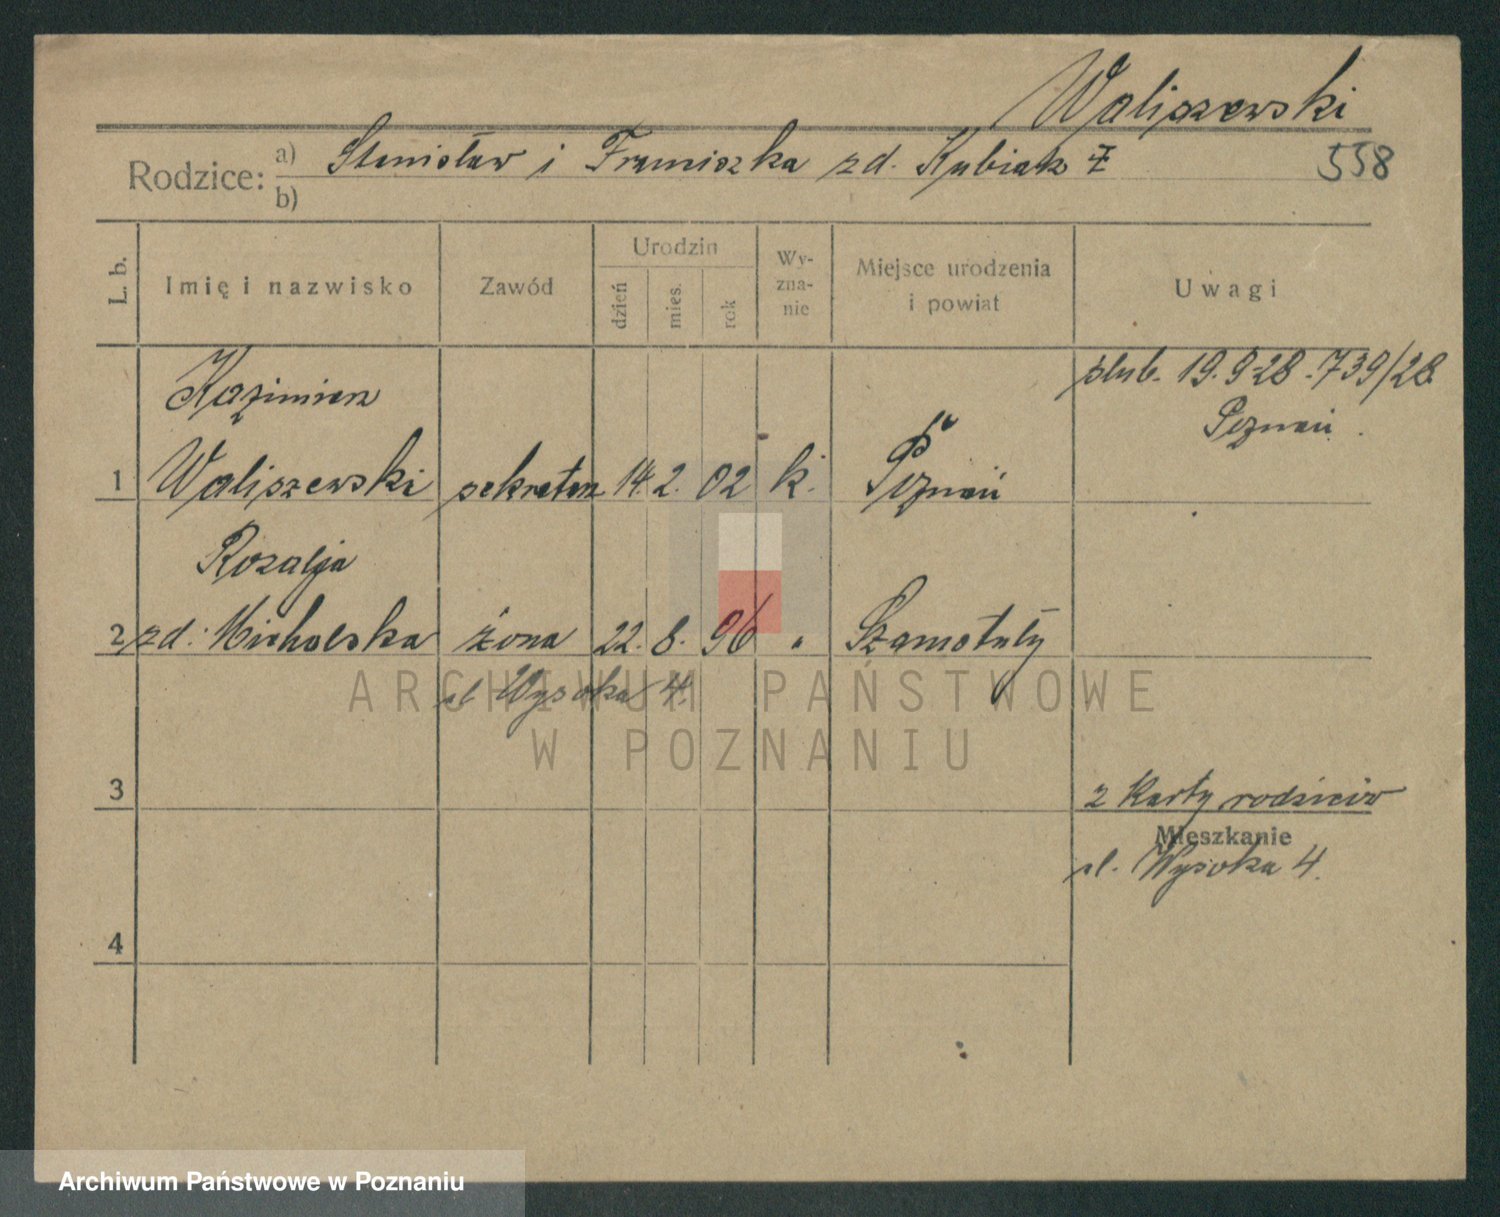 Waliszewski
Rodzice: a) Stanisław i Franciszka zd. Kubiak
b)
558
L. b.
Imię i nazwisko
Zawód
Urodzin
dzień
mies.
rok
Wy-
zna-
nie
Miejsce urodzenia
i powiat
Uwagi
Kazimierz
ślub. 19.9.28 - 739/28
Poznań.
1 Waliszewski sekretarz 14. 2. 02 k. Poznań
Rozalja
2 zd. Michalska żona 22. 8. 96 " Szamotuły
ul Wysoka 4.
ARCHIWUM PAŃSTWOWE
W POZNANIU
3
z Karty rodziców
Mieszkanie
ul. Wysoka 4.
4
Archiwum Państwowe w Poznaniu